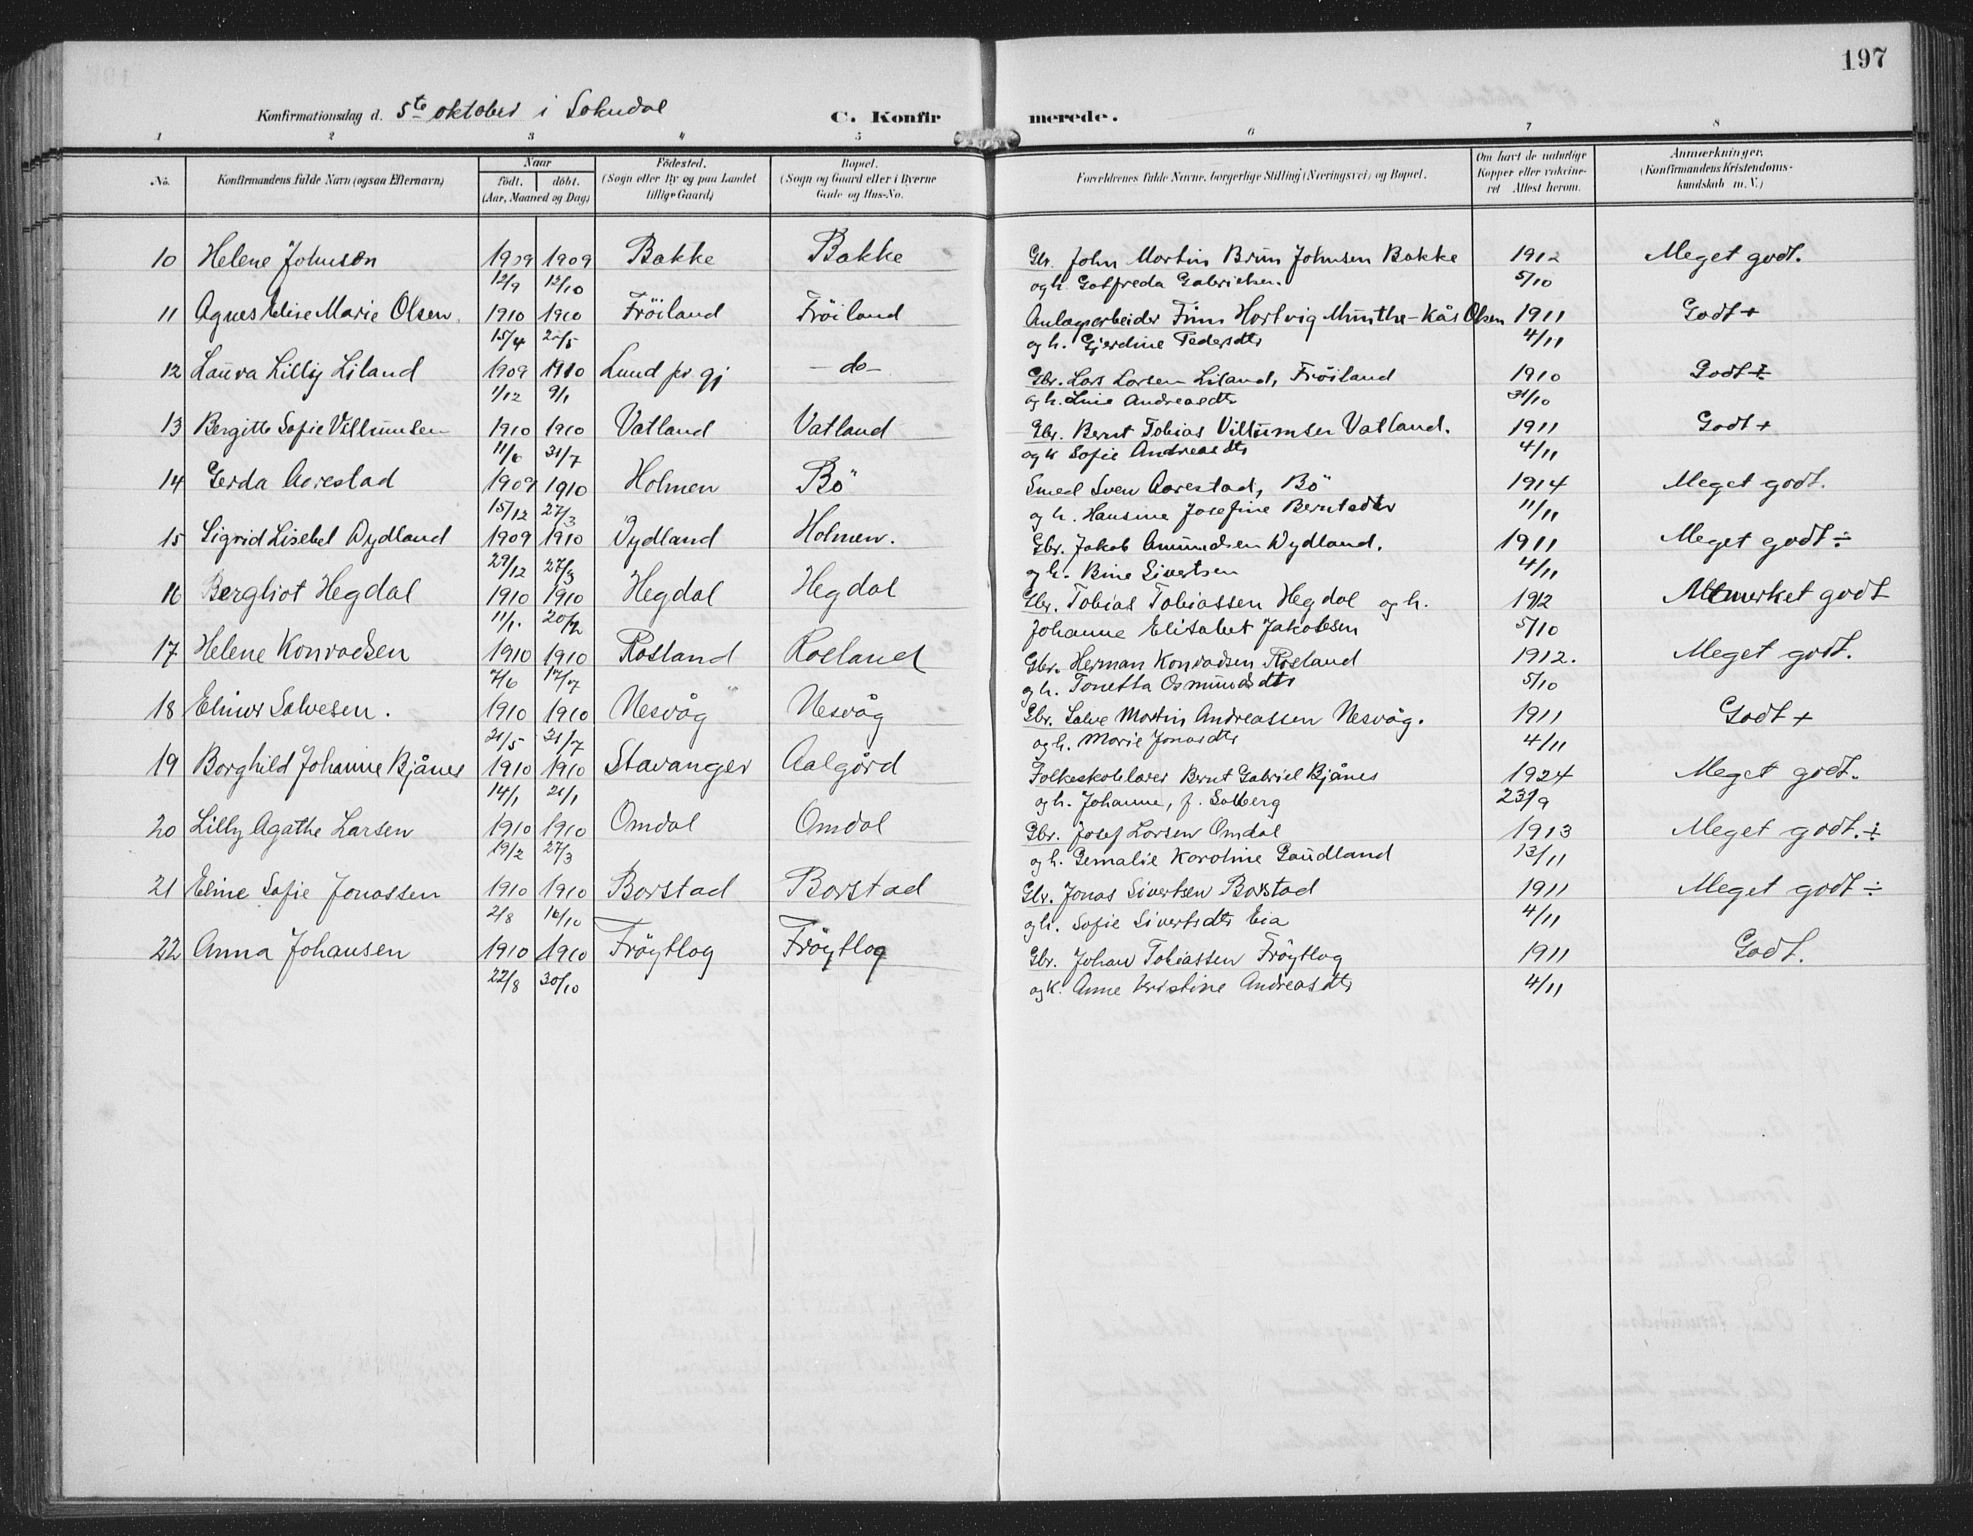 197
Konfirmationsdag d. 5te oktober i Sokndal C. Konfirmerede.
1 2 3 4 5 6 7 8
No. Konfirmandens fulde Navn (ogsaa Efternavn) Naar født. døbt. (Aar, Maaned og Dag) Fødested. (Sogn eller By og paa Landet tillige Gaard) Bopæl. (Sogn og Gaard eller i Byerne Gade og Hus-No. Forældrenes fulde Navne, borgerlige Stilling (Næringsvei) og Bopæl. Om havt de naturlige Kopper eller vaccineret Attest herom. Anmærkninger. (Konfirmandens Kristendomskundskab m. V.)
10 Helene Johnsen 1909 1909 Bakke Bakke Gbr. John Martin Brun Johnsen Bakke 1912 Meget godt.
12/9 12/10 og h. Gotfreda Gabrielsen. 5/10
11 Agnes Elise Marie Olsen. 1910 1910 Frøiland Frøiland Anlagsarbeider Finn Hartvig Munthe-Kås Olsen 1911 Godt +
15/4 22/5 og h. Gjerdine Pedersdtr 4/11
12 Laura Lilly Liland 1909 1910 Lund pr gj - do - Gbr. Lars Larsen Liland, Frøiland 1910 Godt +
1/12 9/1 og h. Line Andreasdtr 31/10
13 Bergitte Sofie Villumsen 1910 1910 Vatland Vatland Gbr. Bernt Tobias Villumsen Vatland. 1911 Godt +
11/6 31/7 og k Sofie Andreasdtr 4/11
14 Gerda Aarestad 1909 1910 Holmen Bö Smed Sven Aarestad, Bö 1914 Meget godt.
15/12 27/3 og h. Hansine Josefine Berntsdtr 11/11
15 Sigrid Lisebet Dydland 1909 1910 Dydland Holmen. Gbr. Jakob Amundsen Dydland. 1911 Meget godt ÷
29/12 27/3 og h. Bine Sivertsen 4/11
16 Bergliot Hegdal 1910 1910 Hegdal Hegdal Gbr. Tobias Tobiassen Hegdal og h. 1912 Utmerket godt
11/1. 20/2 Johanne Elisabet Jakobsen 5/10
17 Helene Konradsen 1910 1910 Rosland Rosland Gbr. Herman Konradsen Rosland 1912. Meget godt.
7/6 17/7 og h. Tonetta Osmundsdtr 5/10
18 Elinor Salvesen. 1910 1910 Nesvåg Nesvåg Gbr. Salve Martin Andreassen Nesvåg. 1911 Godt +
21/5 31/7 og h. Marie Jonasdtr 4/11
19 Borghild Johanne Bjånes 1910 1910 Stavanger Aalgård Folkeskolelærer Bernt Gabriel Bjånes 1924 Meget godt.
14/1 21/1 og h. Johanne, f. Solberg 23/9
20 Lilly Agathe Larsen 1910 1910 Omdal Omdal Gbr. Josef Larsen Omdal 1913 Meget godt. ÷
19/2 27/3 og h. Gemalie Karoline Gaudland 13/11
21 Eline Sofie Jonassen 1910 1910 Barstad Barstad Gbr. Jonas Sivertsen Barstad 1911 Meget godt ÷
2/8 16/10 og h. Sofie Sivertsdtr Eia 4/11
22 Anna Johansen 1910 1910 Frøytlog Frøytlog Gbr. Johan Tobiassen Frøytlog 1911 Godt.
22/8 30/10 og k. Anne Kristine Andreasdtr 4/11